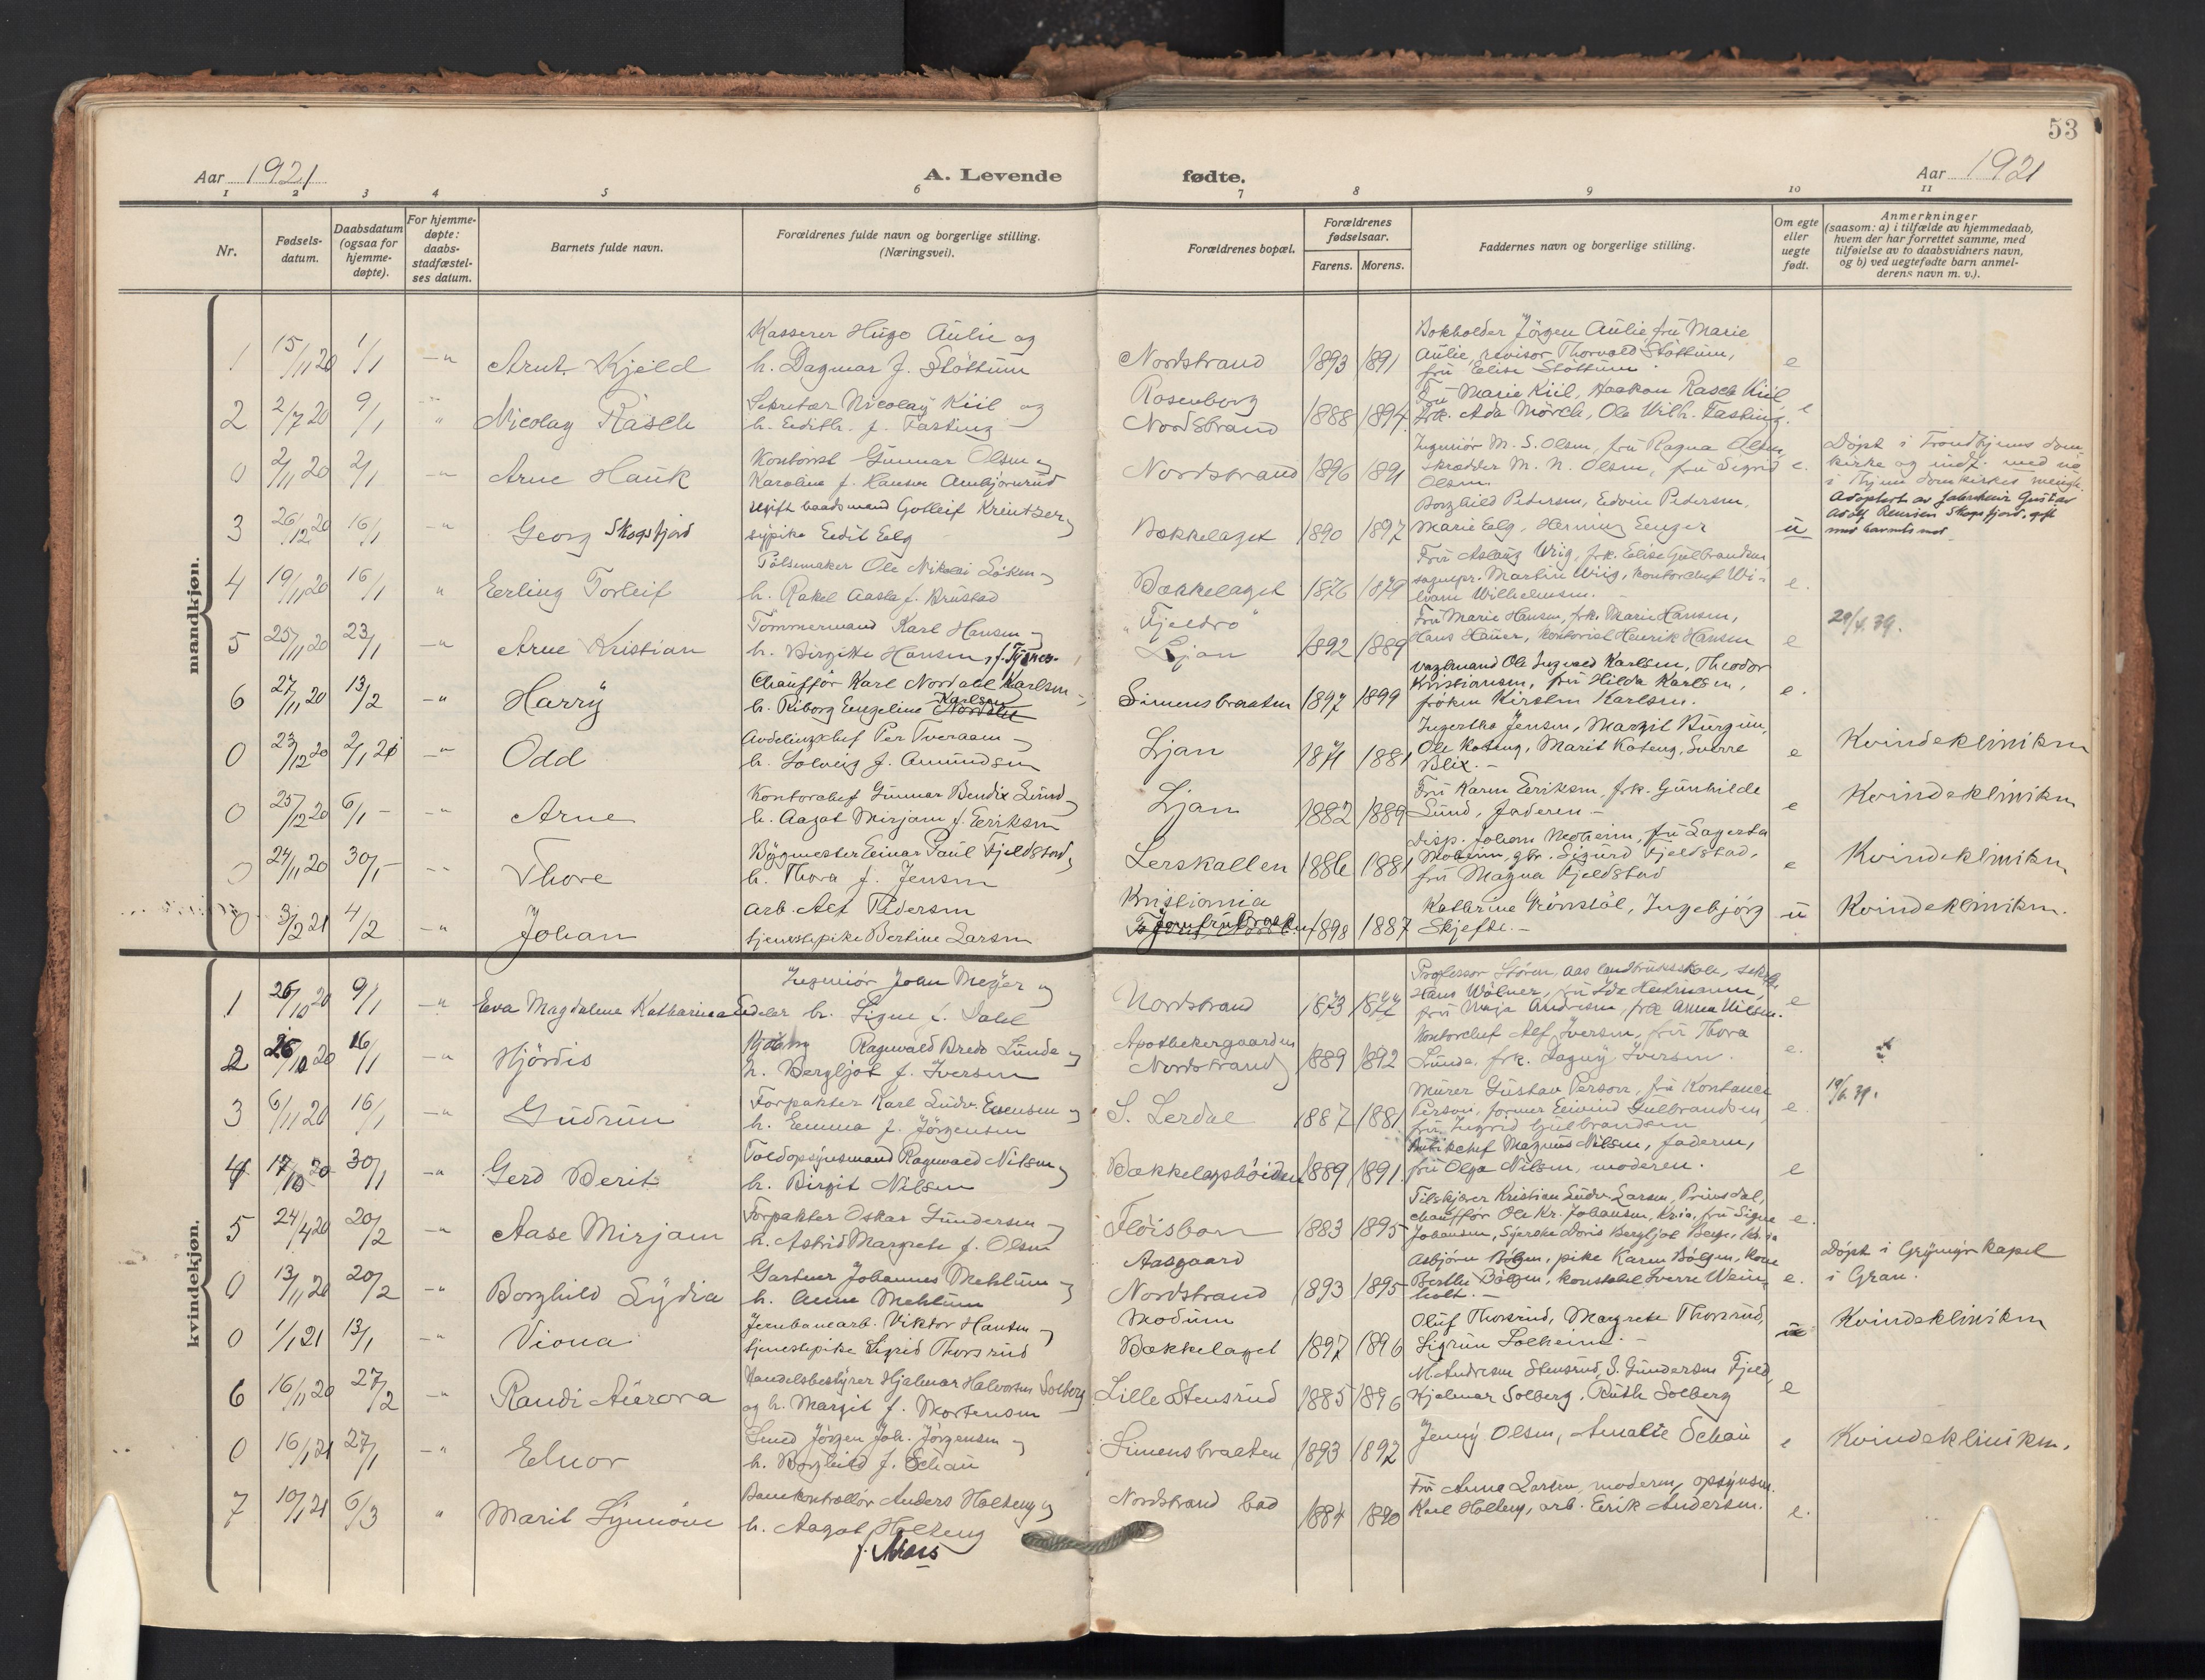 53
Aar 1921
A. Levende fødte.
Aar 1921
1 2 3 4 5 6 7 8 9 10 11
Nr.
Fødsels-
datum.
Daabsdatum
(ogsaa for
hjemme-
døpte).
For hjemme-
døpte:
daabs-
stadfæstel-
ses datum.
Barnets fulde navn.
Forældrenes fulde navn og borgerlige stilling.
(Næringsvei).
Forældrenes bopæl.
Forældrenes
fødselsaar.
Farens. Morens.
Faddernes navn og borgerlige stilling.
Om egte
eller
uegte
født.
Anmerkninger
(saasom: a) i tilfælde av hjemmedaab,
hvem der har forrettet samme, med
tilføielse av to daabsvidners navn,
og b) ved uegtefødte barn anmel-
derens navn m. v.).
mandkjøn.
1 15/11 20 1/1 Arnt Kjeld
Kasserer Hugo Aulie og
h. Dagmar f. Støttum
Nordstrand 1893 1891
Bokholder Jörgen Aulie, fru Marie
Aulie, revisor Thorvald Støttum,
fru Elise Støttum. e
2 2/7 20 9/1 Nicolay Rasch
Sekretær Nicolay Kiil og
h. Edith f. Fasting
Rosenborg
Nordstrand 1888 1894
Fru Marie Kiil, Haakon Rasch Kiil
frk. Ada Mörch, Ole Vilh. Fasting. e
0 2/11 20 2/1 Arne Hauk
Kontorist Gunnar Olsen og
Karoline f. Hansen
Nordstrand 1896 1891
Ingeniör M. S. Olsen, fru Ragna Olsen,
skrædder M. N. Olsen, fru Sigrid
Olsen e.
Döpt i Trondhjems dom
kirke og indf. med no
3 26/12 20 16/1 Georg Skogsfjord
ugift baadsmand Gotleif Kreutzer og
sypike Edit Eelg
Bækkelaget 1890 1897
Borghild Pedersen, Edvin Pedersen,
Marie Eelg, Henning Eenger u
Adoptert av Gustav
Adolf Skogsfjord, gift
med barnets mor.
4 19/11 20 16/1 Eerling Torleif
Pölsemaker Ole Nikolai
h. Rakel Aasta f. Brustad
Bækkelaget 1876 1879
Fru Aslaug Wiig, frk. Elise Gulbrandsen
sognepr. Martin Wiig, kontorchef Wi-
liam Wilhelmsen. e.
5 25/11 20 23/1 Arne Kristian
Tömmermand Karl Hansen og
h. Birgitte Hansen, f.
"Fjeldro"
Ljan 1892 1889
Fru Marie Hansen, frk. Marie Hansen,
Hans Hauer, kontorist Henrik Hansen e
29/4.39.
6 27/11 20 13/2 Harry
Chauffør Karl Nordahl Karlsen
h. Riborg Engeline Karlsen
Simensbraaten 1897 1899
Vagtmand Ole Ingvald Karlsen, Theodor
Kristiansen, fru Hilda Karlsen,
fröken Kirsten Karlsen. e.
0 23/12 20 2/1 21 Odd
Avdelingschef Per Tveraaen
h. Solveig f. Amundsen
Ljan 1871 1881
Ingertha Jensen, Margit
Ole Koteng, Marit Koteng, Sverre
Blix. e
Kvindekliniken
0 25/12 20 6/1 Arne
Kontorchef Gunnar Bendix Lund og
h. Aagot Mirjam f. Eeriksen
Ljan 1882 1889
Fru Karen Eeriksen, frk. Gunhilde
Lund, faderen. e
Kvindekliniken
0 24/11 20 30/1 Thore
Bygmester Einar Paul Fjeldstad og
h. Thora f. Jensen
Lerskallen 1886 1881
Disp. Johan Moheim, fru Lagerta
Moheim, gbr. Sigurd Fjeldstad,
fru Magna Fjeldstad e
Kvindekliniken
0 3/2 21 4/2 Johan
arb. Alf Pedersen
tjenestepike Bertine Larsen
Kristiania
1898 1887
Kathrine Grönstöl, Ingebjörg
Skjefte. u
Kvindekliniken.
kvindekjøn.
1 26/10 20 9/1 Eva Magdalene Katharina Edeler
Ingeniör John Meyer og
h. Signe f. Dahl
Nordstrand 1873 1877
Professor Stören, Aas landbruksskole,
Hans Wölner, fru Ida Heitmann,
fru Maja Andresen, frk. Anna Nilsen. e
2 26/10 20 16/1 Hjördis
Ragnvald Bredo Lunde og
h. Bergljot f. Iversen
Apothekergaarden
Nordstrand 1889 1892
Kontorchef Alf Iversen, fru Thora
Lunde, frk. Dagny Iversen. e.
3 6/11 20 16/1 Gudrun
Forpakter Karl Ludv. Evensen og
h. Emma f. Jörgensen
S. Lerdal 1887 1881
Murer Gustav Person, fru Konstance
Person, former Eivind Gulbrandsen,
fru Ingrid Gulbrandsen e.
4 17/10 20 30/1 Gerd Berit
Toldopsynsmand Ragnvald Nilsen og
h. Birgit Nilsen
Bækkelagshöiden 1889 1891
Butikchef Magnus Nilsen, faderen,
fru Olga Nilsen, moderen. e
5 24/4 20 20/2 Aase Mirjam
Forpakter Oskar Gundersen
h. Astrid Margrete f. Olsen
Flöisbon 1883 1895
Tilskjærer Kristian Ludv. Larsen, Prinsdal,
chauffør Ole Kr. Johansen, Kr.ia, fru Signe
Johansen, Syerske Doris Bergljot Berge, Kr.ia e.
0 13/11 20 20/2 Borghild Lydia
Gartner Johannes Mehlum og
h. Anna Mehlum
Aasgaard
Nordstrand 1893 1895
Asbjörn Bölgen, pike Karen Bölgen, kone
Berthe Bölgen, konstabel Sverre Wein-
holt. e.
Döpt i Grymyr kapel
i Gran.
0 1/1 21 13/1 Viona
Jernbanearb. Viktor Hansen og
tjenestepike Sigrid Thorsrud
Modum
Bækkelaget 1897 1896
Oluf Thorsrud, Margrete Thorsrud,
Sigrun Solheim. u
Kvindekliniken
6 16/11 20 27/2 Randi Aurora
Handelsbestyrer Hjalmar Halvorsen Solberg
og h. Margit f. Mortensen
Lille Stensrud 1885 1896
M. Andresen Stensrud, S. Gundersen Fjeld,
Hjalmar Solberg, Ruth Solberg e
0 16/1 21 27/1 Elnor
Smed Jörgen Joh. Jörgensen og
h. Borghild f. Schau
Simensbraaten 1893 1892
Jenny Olsen, Amalie Schau e
Kvindekliniken.
7 10/1 21 6/3 Marit Synnöve
Banekontrollör Anders Holteng og
h. Aagot Holteng
f. Moss
Nordstrand bad 1884 1890
Fru Anna Larsen, moderen, opsynsm.
Karl Holteng, arb. Eirik Andersen. e.